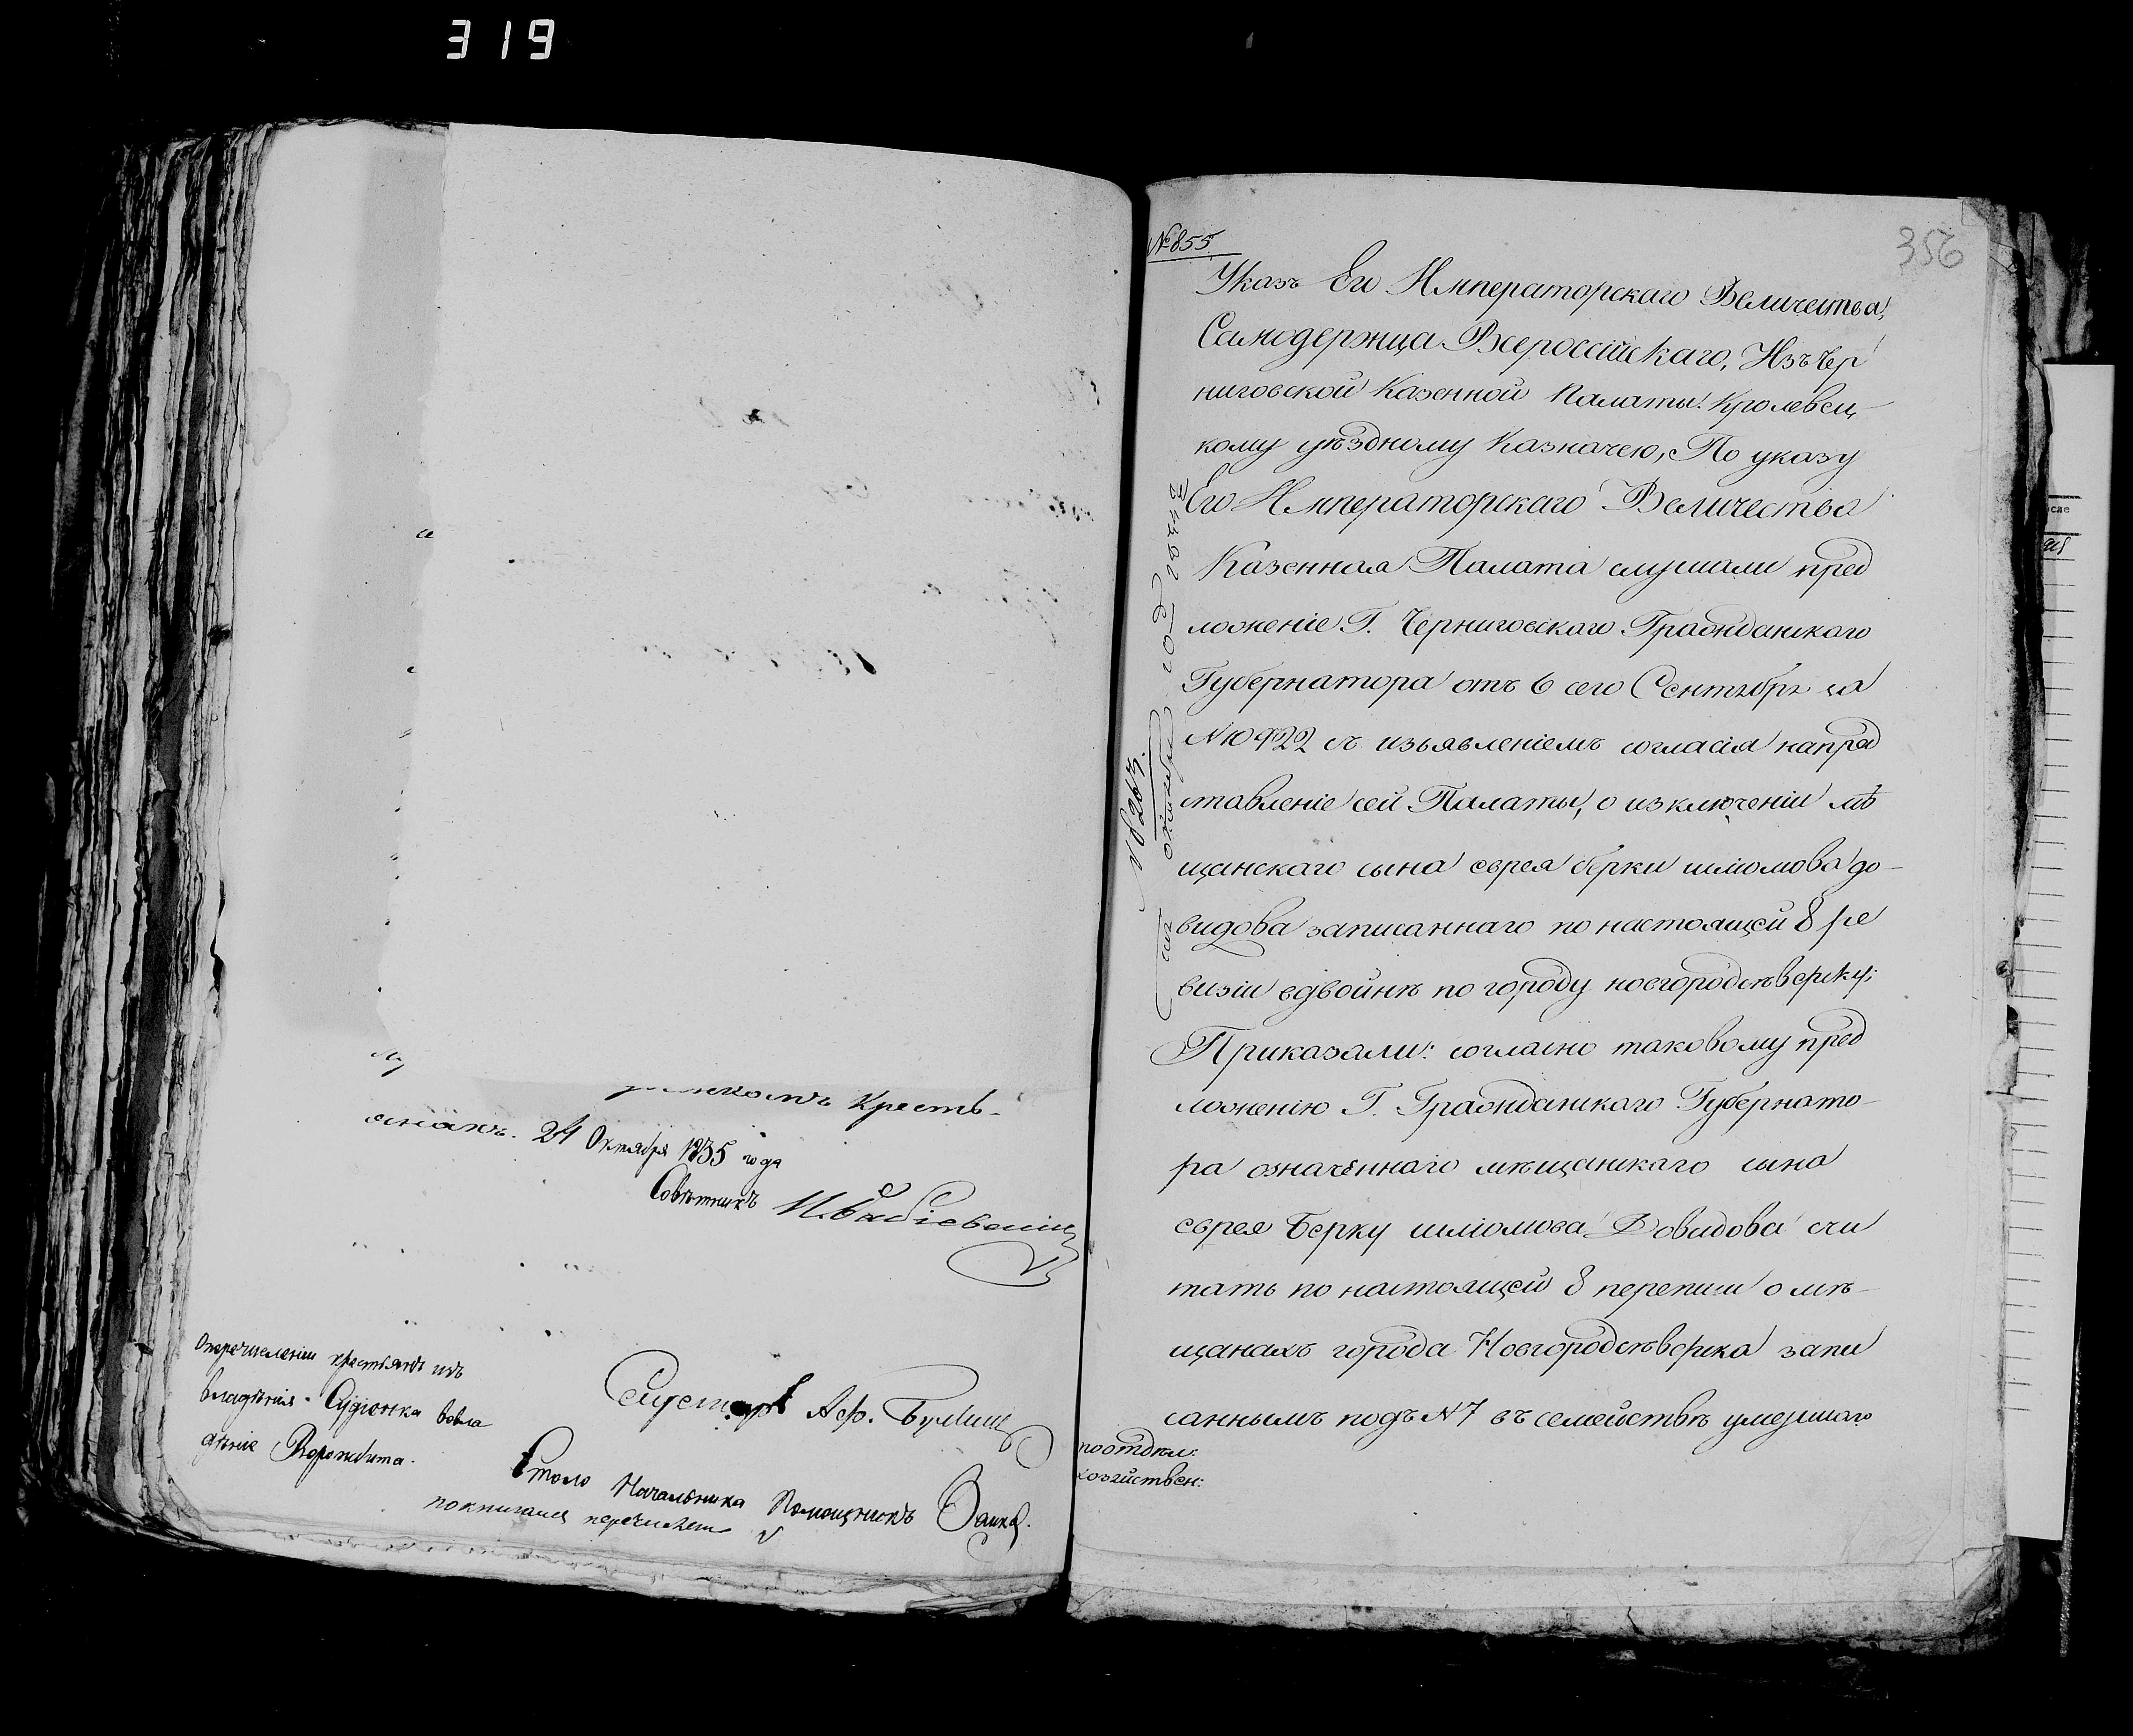 319
крестъ-
янахъ. 24 Октября 1835 года
Совѣтникъ
О перечисленіи крестьянъ изъ
владѣнія Судіонка во вла
дѣніе
Столо Начальника Помощникъ
по книгамъ перечислены
№855
356
Указъ Его Императорскаго Величества,
Самодержца Всероссійскаго, Изъ Чер
ниговской Казенной Палаты. Кролевец-
кому уѣздному Казначею, По указу
Его Императорскаго Величества
Казенная Палата слушали пред
ложеніе Г. Черниговскаго Гражданскаго
Губернатора отъ 6 сего Сентября за
N 10922 съ изъявленіемъ согласія напред
ставленіе сей Палаты, о изключеніи мѣ
щанскаго сына еврея берки шліомова до-
видова записаннаго по настоящей 8 ре
визіи вдвойнѣ по городу новгородсѣверску;
Приказали: согласно таковому пред
ложенію Г. Гражданскаго Губернато-
ра означеннаго мѣщанскаго сына
еврея Берку шліомова Довидова счи
тать по настоящей 8 переписи о мѣ-
щанахъ города Новгородсѣверска запи
саннымъ подъ N 7 въ семействѣ умершаго
по отдѣл:
хозяйствен:
N 8263.
октября